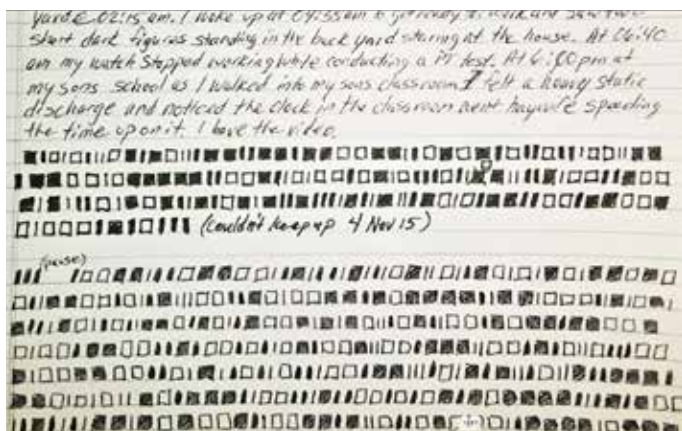 yard @ 02:15 am. I woke up at 04:55am to get ready to walk and saw two
short dark figures standing in the back yard staring at the house. At 06:40
am my watch stopped working while conducting a PT test. At 6:00pm at
my sons school as I walked into my sons classroom I felt a heavy static
discharge and noticed the clock in the classroom went haywire speeding
the time upon it. I have the video.
(Couldn't keep up 4 Nov 15)
(pause)